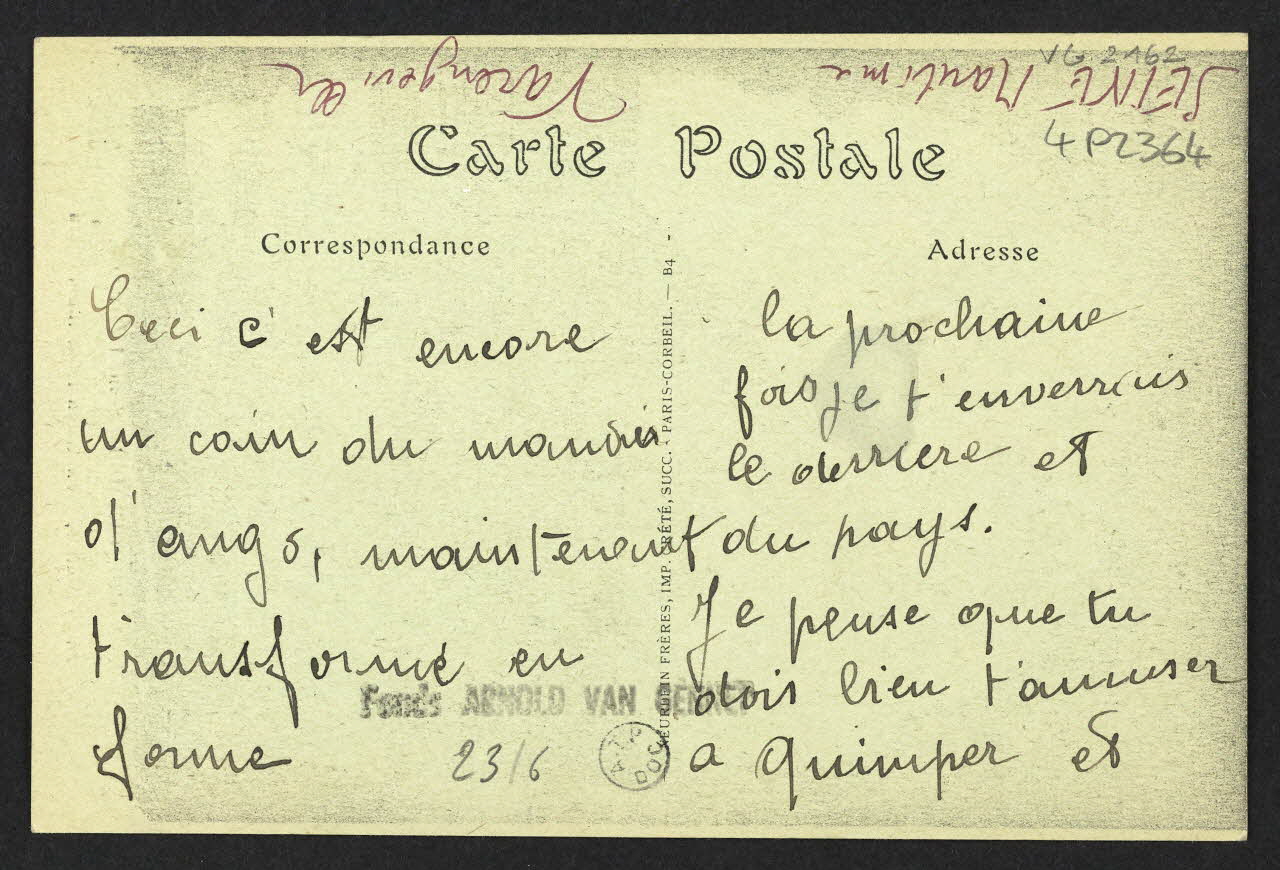 VG 2162
SEINE Maritime
Varengeville
4 P2364
Carte Postale
Correspondance
Adresse
Ceci c'est encore
un coin du manoir
d'ango, maintenant
transformé en
ferme
la prochaine
fois je t'enverrais
le derriere et
du pays.
Je pense que tu
dois bien t'amuser
a Quimper et
Fonds ARNOLD VAN GENNEP
23/6
A.T.P.
DOC
NEURDEIN FRÈRES, IMP. CRÉTÉ, SUCC. - PARIS-CORBEIL. — B4 -